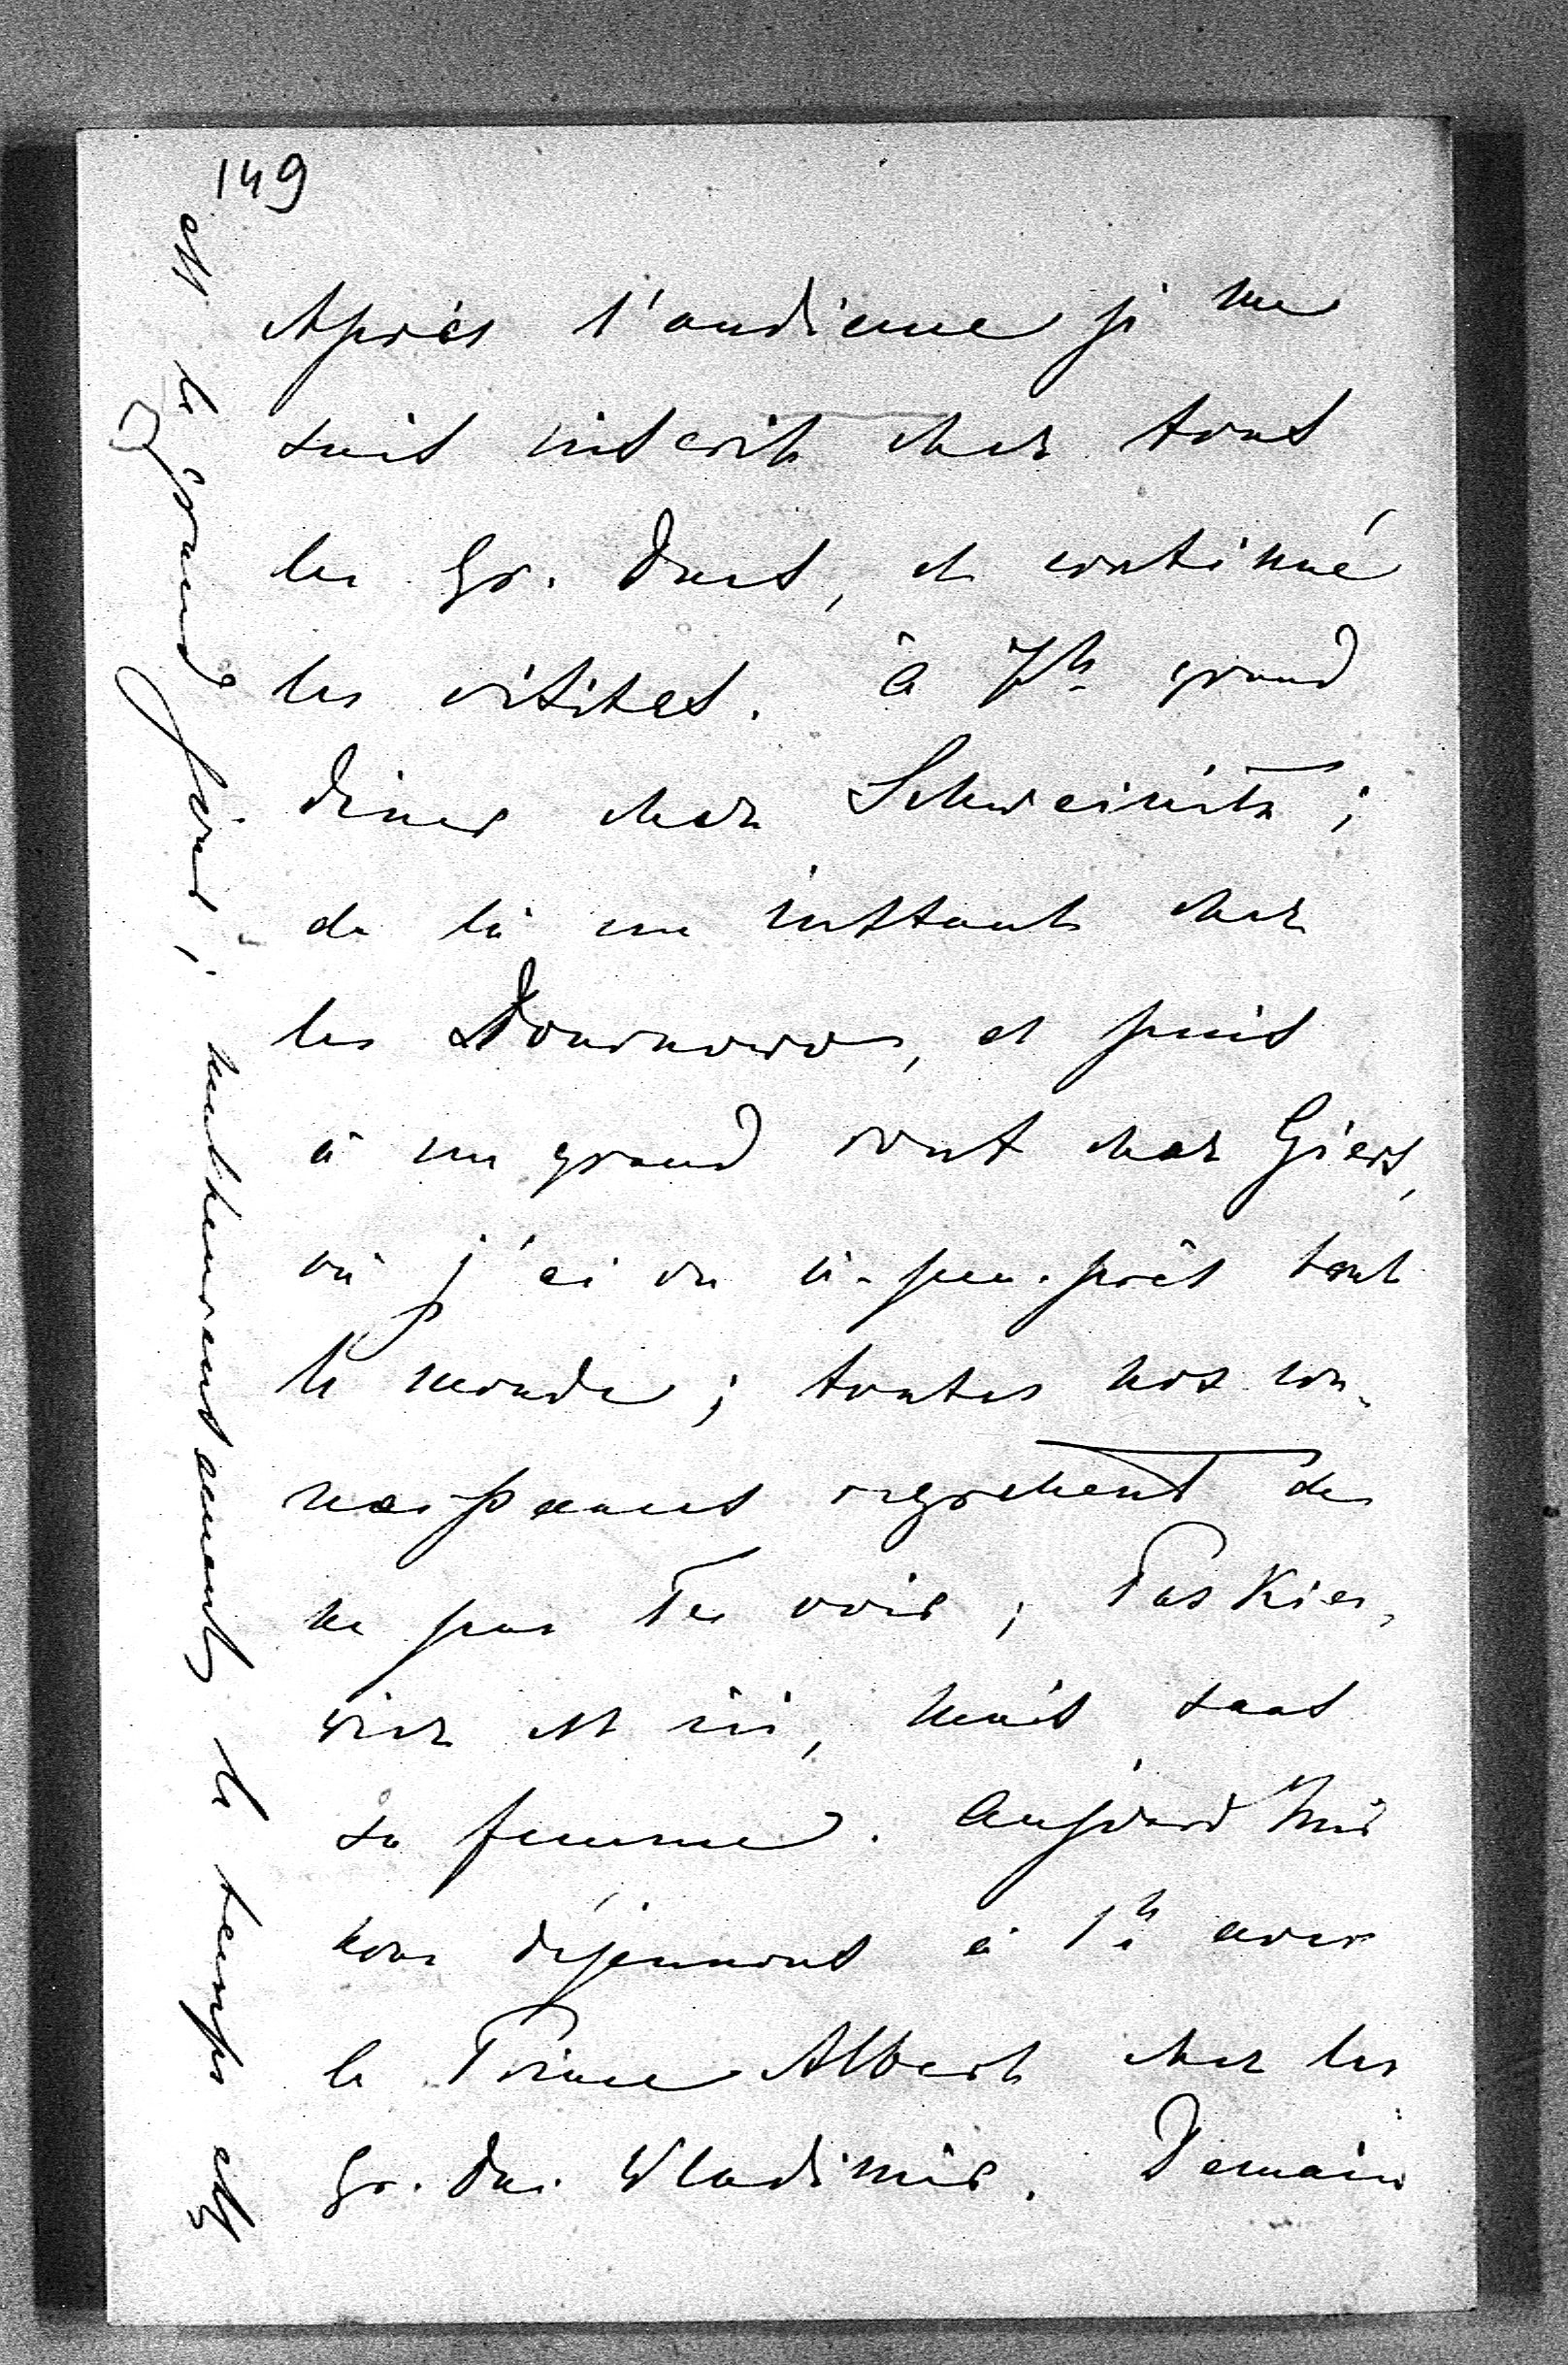 149
Après l'audience je me
suis inscrit chez tous
les Gr. Ducs, et continué
les visites. à 7h grand
diner chez Schweinitz ;
de là un instant chez
les Dournowos, et puis
à un grand rout chez Giers,
où j'ai vu à-peu-près tout
le monde ; toutes nos con-
naissances regrettent de
ne pas Te voir ; Paskie-
wicz est ici, mais sans
sa femme. Aujourd'hui
nous déjeunons à 1h avec
le Prince Albert chez les
Gr. Duc Wladimir. Demain
est le grand jour ; malheureusement le temps est